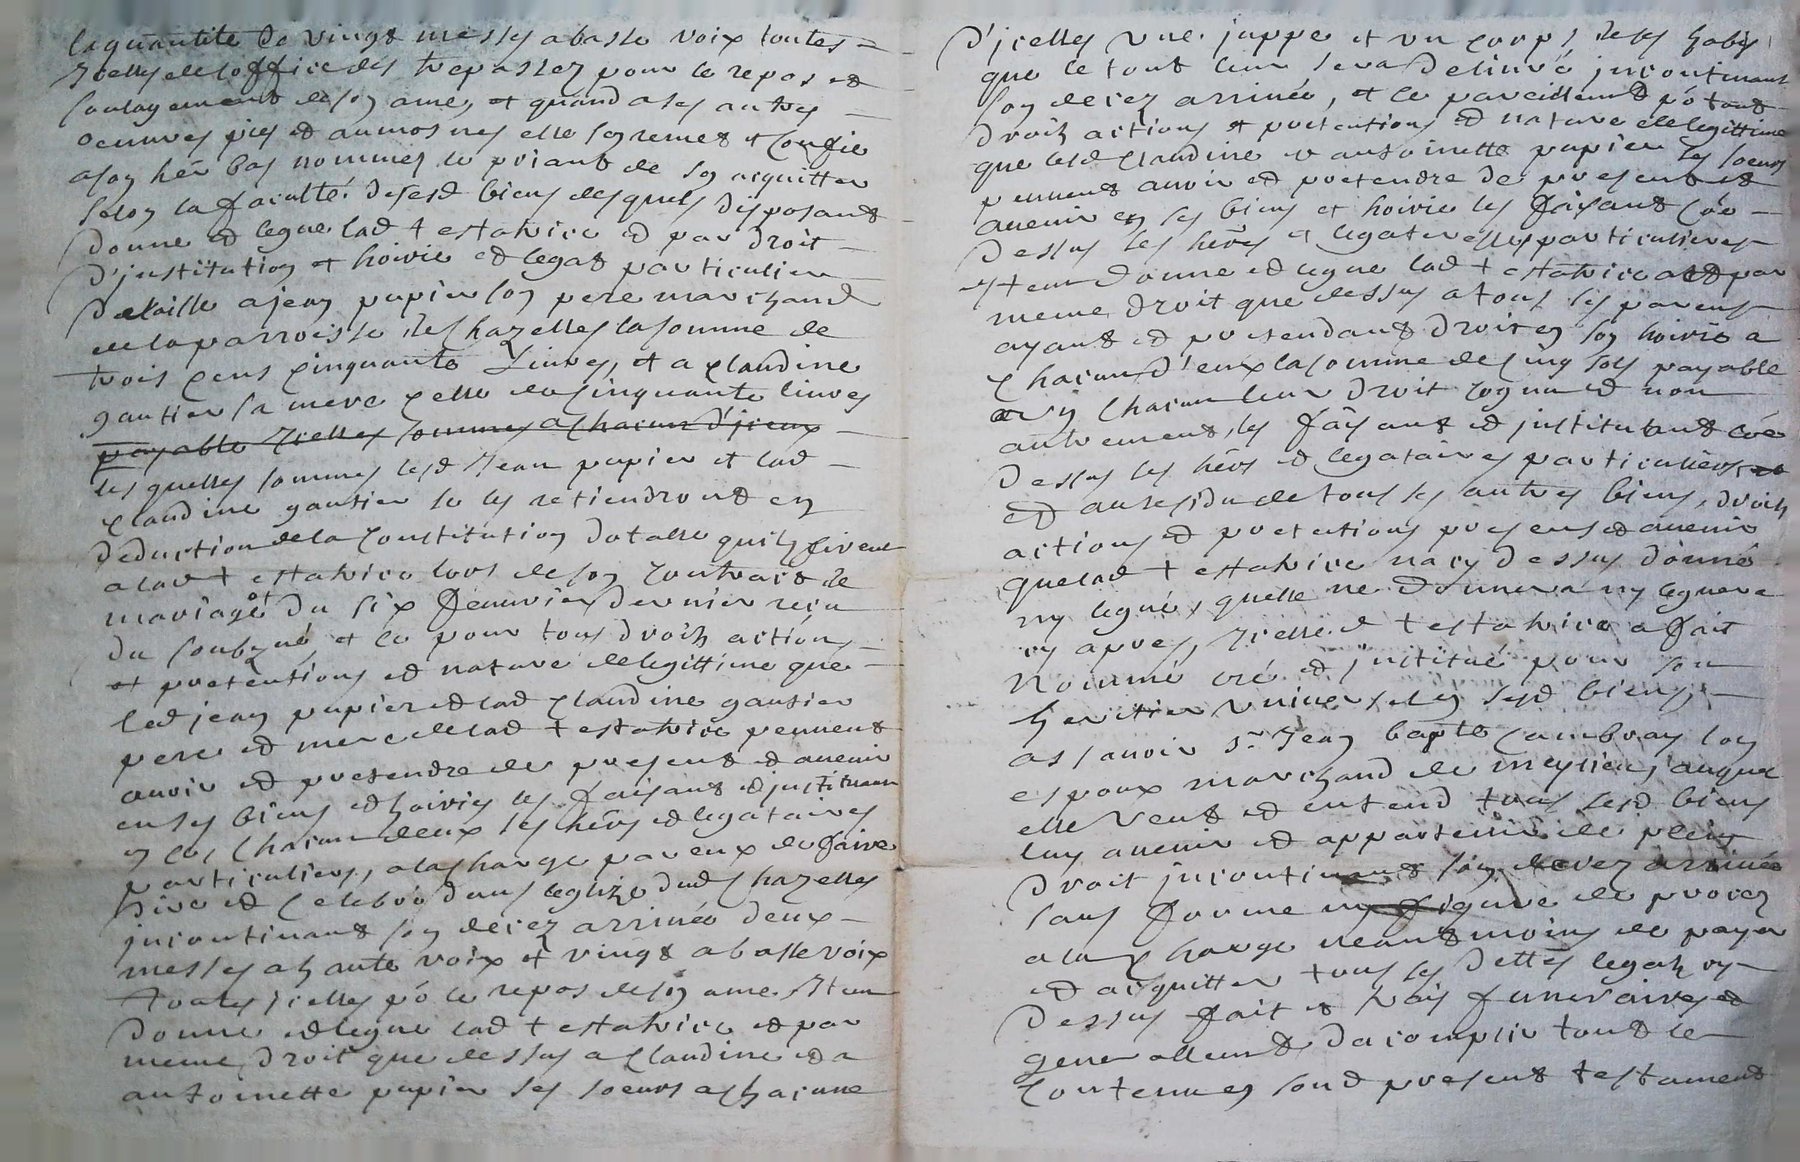 la quantité de vingt messes a basse voix toutes
Icelles de l'office des trepassez pour le repos et
soulagement de son ame, et quand a ses autres
oeuvres pies et aumosnes elle s'en remet et confie
a son hér bas nommé le priant de s'en acquitter
selon la faculté de sesd biens desquels disposant
donne et legue lad testatrice et par droit
d'institution et hoirie et legat particulier
delaille a jean papier son pere marchand
de la parroisse des hazelles la somme de
trois cens cinquante Livres, et a claudine
gautier sa mere celle de cinquante livres
payable Icelles sommes a chacun d'iceux
lesquelles sommes lesd Jean papier et lad
claudine gautier se les retiendront en
deduction de la constitution dotalle quils firent
a lad testatrice lors de son contract de
mariage du six Janvier dernier reçu
du soubzné et ce pour tous droits actions
et pretentions et nature de legittime que
led jean papier et lad claudine gautier
pere et mere de lad testatrice peuvent
avoir et pretendre de present et avenir
en ses biens et hoiries les faisant et instituant
en ce chacun deux ses hérs et legataires
particuliers, a la charge par eux de faire
dire et celebré dans leglize dud hazelles
incontinant son decez arrivée deux
messes a haute voix et vingt a basse voix
toutes icelles pō le repos de son ame Item
donne et legue lad testatrice et par
meme droit que dessus a claudine et a
antoinette papier ses soeurs a chacune
d'icelles une juppe et un corps de ses habis
que le tout leur sera delivré incontinant
son decez arrivée, et ce pareillemt pō tout
droits actions et pretentions et nature de legittime
que lesd claudine et antoinette papier ses soeurs
peuvent avoir et pretendre de present et
avenir en ses biens et hoirie les faisant cōe
dessus ses hérs et legateresses particulieres
Item donne et legue lad testatrice et par
meme droit que dessus a tous ses parens
ayant et pretendant droit en son hoirie a
chacun d'eux la somme de cinq sols payable
a un chacun leur droit cognu et non
autrement, les faisant et instituant cōe
dessus ses hérs et legataires particuliers
et au residu de tous ses autres biens, droits
actions et pretentions presens et avenir
que lad testatrice na cy dessus donné
ny legué, quelle ne donnera ny leguera
cy apres, Icelle d testatrice a fait
nommé cré et institué pour son
heritier universel en sesd biens,
assavoir sr Jean bapte cambray son
espoux marchand de meysieu, auquel
elle veut et entend tous sesd biens
luy avenir et appartenir de plein
droit incontinant son decez arrivée
sans forme ny figure de procez
a la charge neantmoins de payer
et acquitter tous ses dettes legats cy
dessus fait et frais funeraires et
generallemt dacomplir tout le
contenu en sond present testament